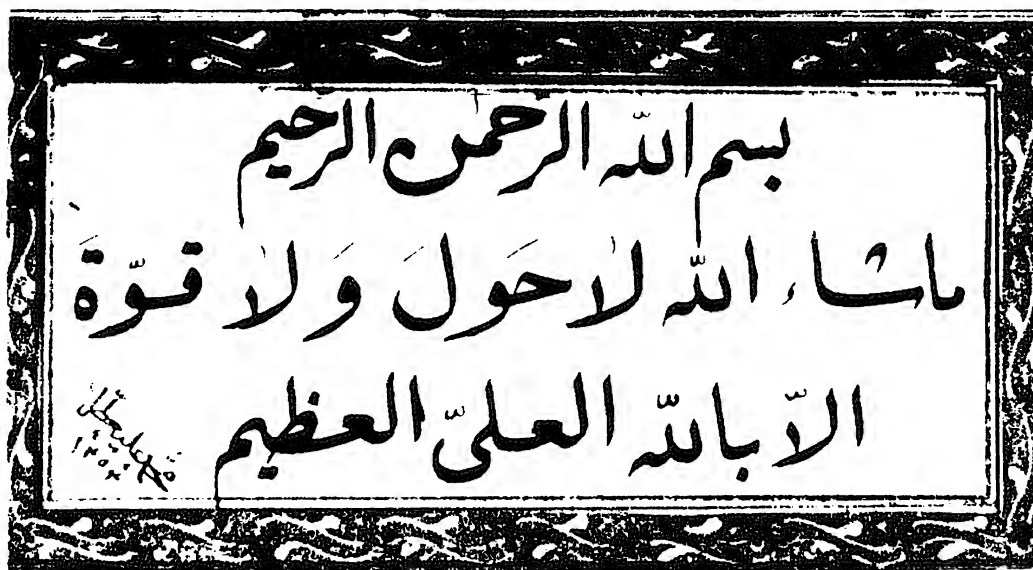 بسم الله الرحمن الرحيم
ماشاء الله لا حَولَ وَلا قوّةَ
الاّ بالله العليّ العظيم